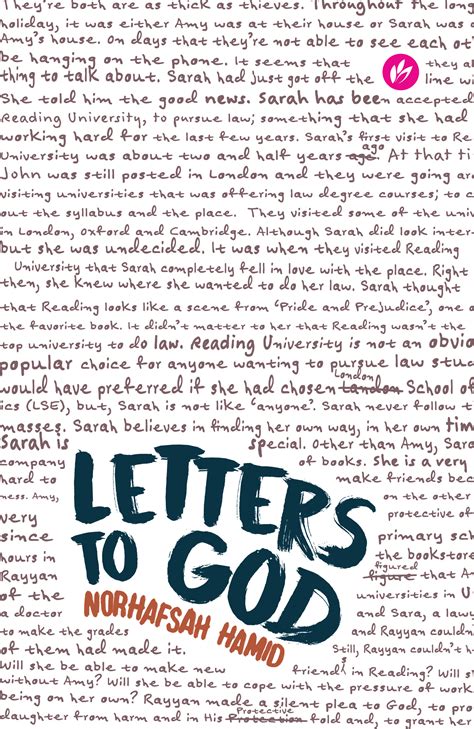 They're both are as thick as thieves. Throughout the long
holiday, it was either Amy was at their house or Sarah was a
Amy's house. On days that they're not able to see each ot
be hanging on the phone. It seems that they a
thing to talk about. Sarah had just got off the line wi
She told him the good news. Sarah has been accepted
Reading University, to pursue law; something that she had
working hard for the last few years. Sarah's first visit to Re
University was about two and half years ago age. At that ti
John was still posted in London and they were going ar
visiting universities that was offering law degree courses; to c
out the syllabus and the place. They visited some of the uni
in London, Oxford and Cambridge. Although Sarah did look inter
but she was undecided. It was when they visited Reading
University that Sarah completely fell in love with the place. Right
then, she knew where she wanted to do her law. Sarah thought
that Reading looks like a scene from 'Pride and Prejudice', one o
the favorite book. It didn't matter to her that Reading wasn't the
top university to do law. Reading University is not an obvio
popular choice for anyone wanting to pursue law stud
would have preferred if she had chosen London landon School of
ics (LSE), but, Sarah is not like 'anyone'. Sarah never follow t
masses. Sarah believes in finding her own way, in her own tim
Sarah is special. Other than Amy, Sar
company of books. She is a very
hard to make friends bec
ness. Amy, on the other
very protective of
since primary sch
hours in the bookstore
Rayyan figured figure that A
of the universities i
a doctor and Sara, a law
to make the grades and Rayyan couldn
of them had made it. Still, Rayyan couldn't h
Will she be able to make new friends in Reading? Will s
without Amy? Will she be able to cope with the pressure of work
being on her own? Rayyan made a silent plea to God, to pro
daughter from harm and in His Protective Protection fold and, to grant her
LETTERS
TO GOD
NORHAFSAH HAMID